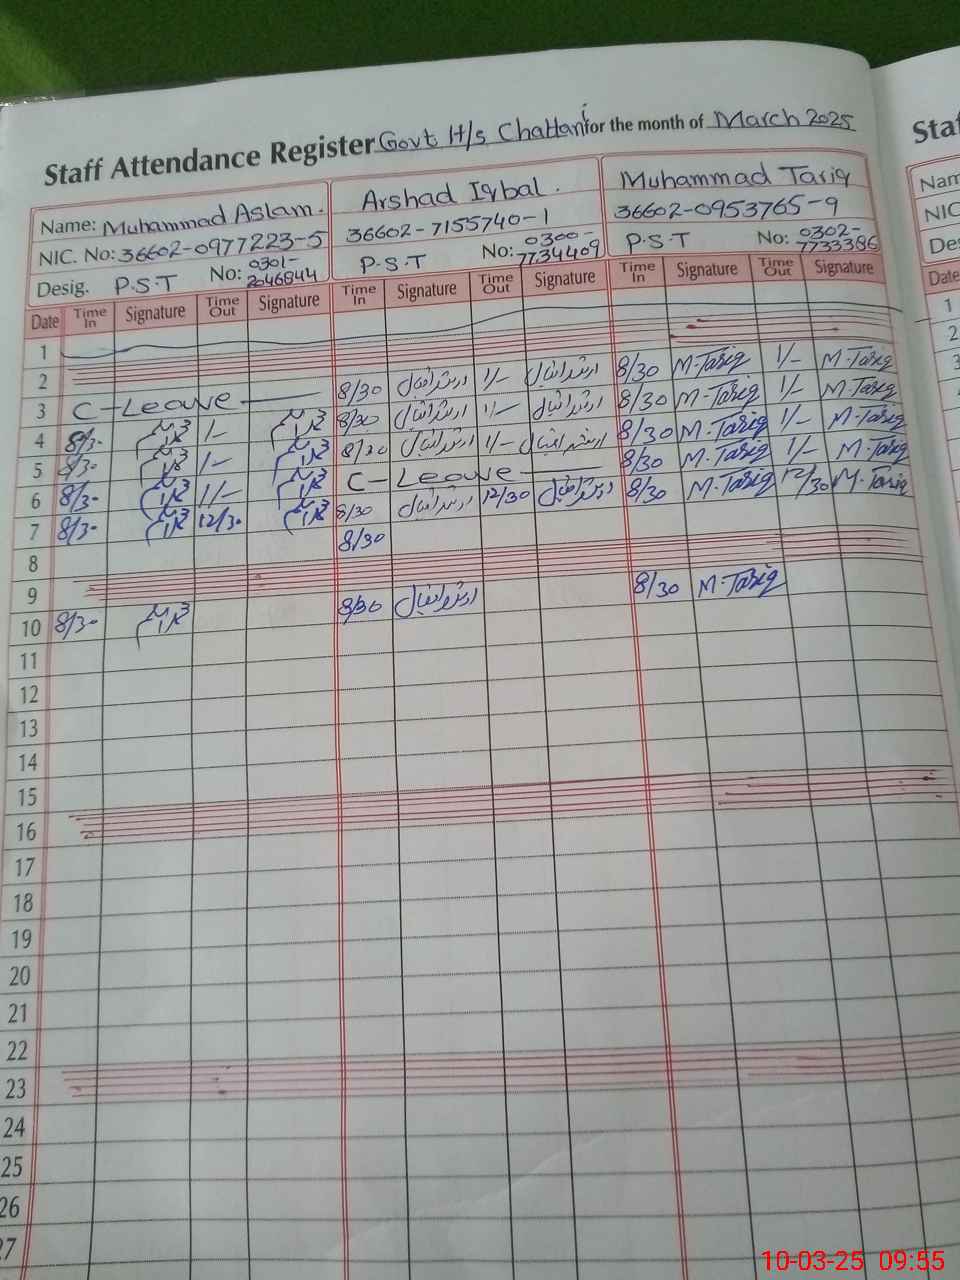 Staff Attendance Register Govt H/s Chattani for the month of March 2025
Name: Muhammad Aslam. Arshad Iqbal. Muhammad Tariq
NIC. No: 36602-0977223-5 36602-7155740-1 36602-0953765-9
Desig. P.S.T No: 0301-2046844 P.S.T No: 0300-7734409 P.S.T No: 0302-7733386
Date Time In Signature Time Out Signature Time In Signature Time Out Signature Time In Signature Time Out Signature
1
2
3 C-Leave 8/30 ارشد اقبال 1/- ارشد اقبال 8/30 M.Tariq 1/- M.Tariq
4 8/30 1/- 8/30 ارشد اقبال 1/- ارشد اقبال 8/30 M.Tariq 1/- M.Tariq
5 8/30 1/- 8/30 ارشد اقبال 1/- ارشد اقبال 8/30 M.Tariq 1/- M.Tariq
6 8/30 1/- C-Leave 8/30 M.Tariq 1/- M.Tariq
7 8/30 12/30 8/30 ارشد اقبال 12/30 ارشد اقبال 8/30 M.Tariq 12/30 M.Tariq
8 8/30
9
10 8/30 8/30 ارشد اقبال 8/30 M.Tariq
11
12
13
14
15
16
17
18
19
20
21
22
23
24
25
26
27
Sta
Nam
NIC
Des
Date
1
2
3
4
5
6
7
8
9
10-03-25 09:55